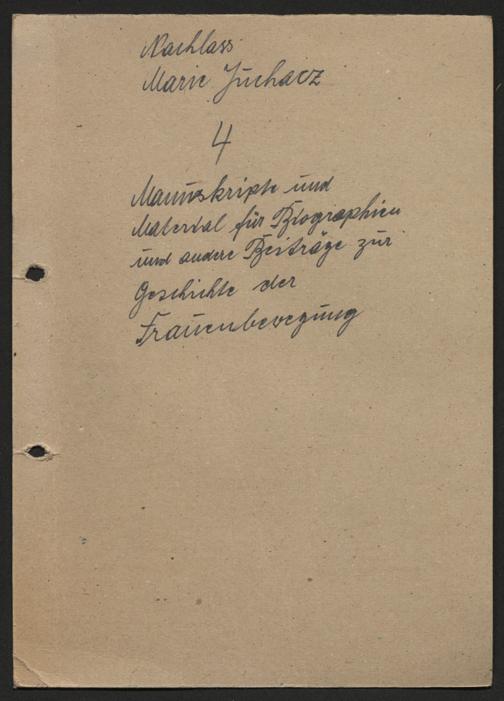 Nachlass
Marie Juchacz
4
Manuskripte und
Material für Biographien
und andere Beiträge zur
Geschichte der
Frauenbewegung